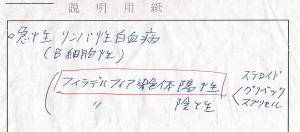 説明用紙
○急性リンパ性白血病
(B細胞性)
フィラデルフィア染色体陽性
〃 陰性
ステロイド
グリベック
スプリセル